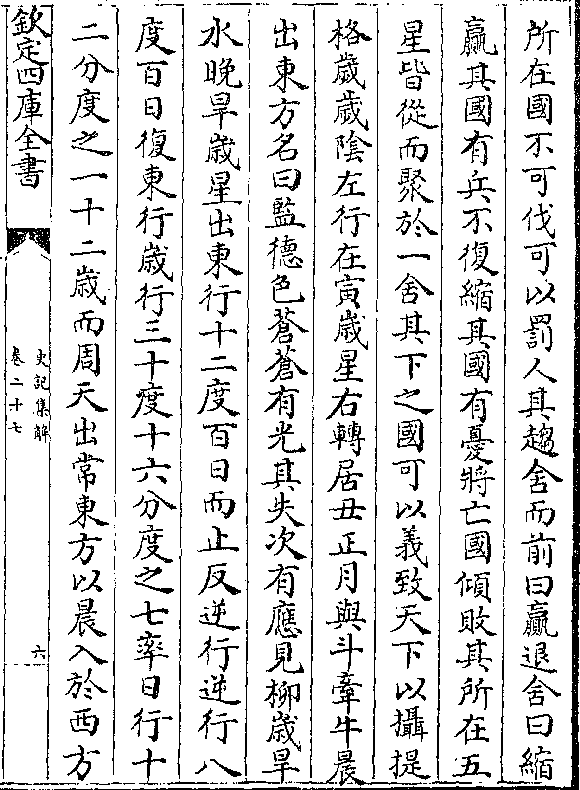 所在國不可伐可以罰人其趨舍而前曰贏退舍曰縮
贏其國有兵不復縮其國有憂將亡國傾敗其所在五
星皆從而聚於一舍其下之國可以義致天下以攝提
格歲歲陰左行在寅歲星右轉居丑正月與斗牽牛晨
出東方名曰監德色蒼蒼有光其失次有應見柳歲早
水晚旱歲星出東行十二度百日而止反逆行逆行八
度百日復東行歲行三十度十六分度之七率日行十
二分度之一十二歲而周天出常東方以晨入於西方
欽定四庫全書
史記集解
卷二十七
六